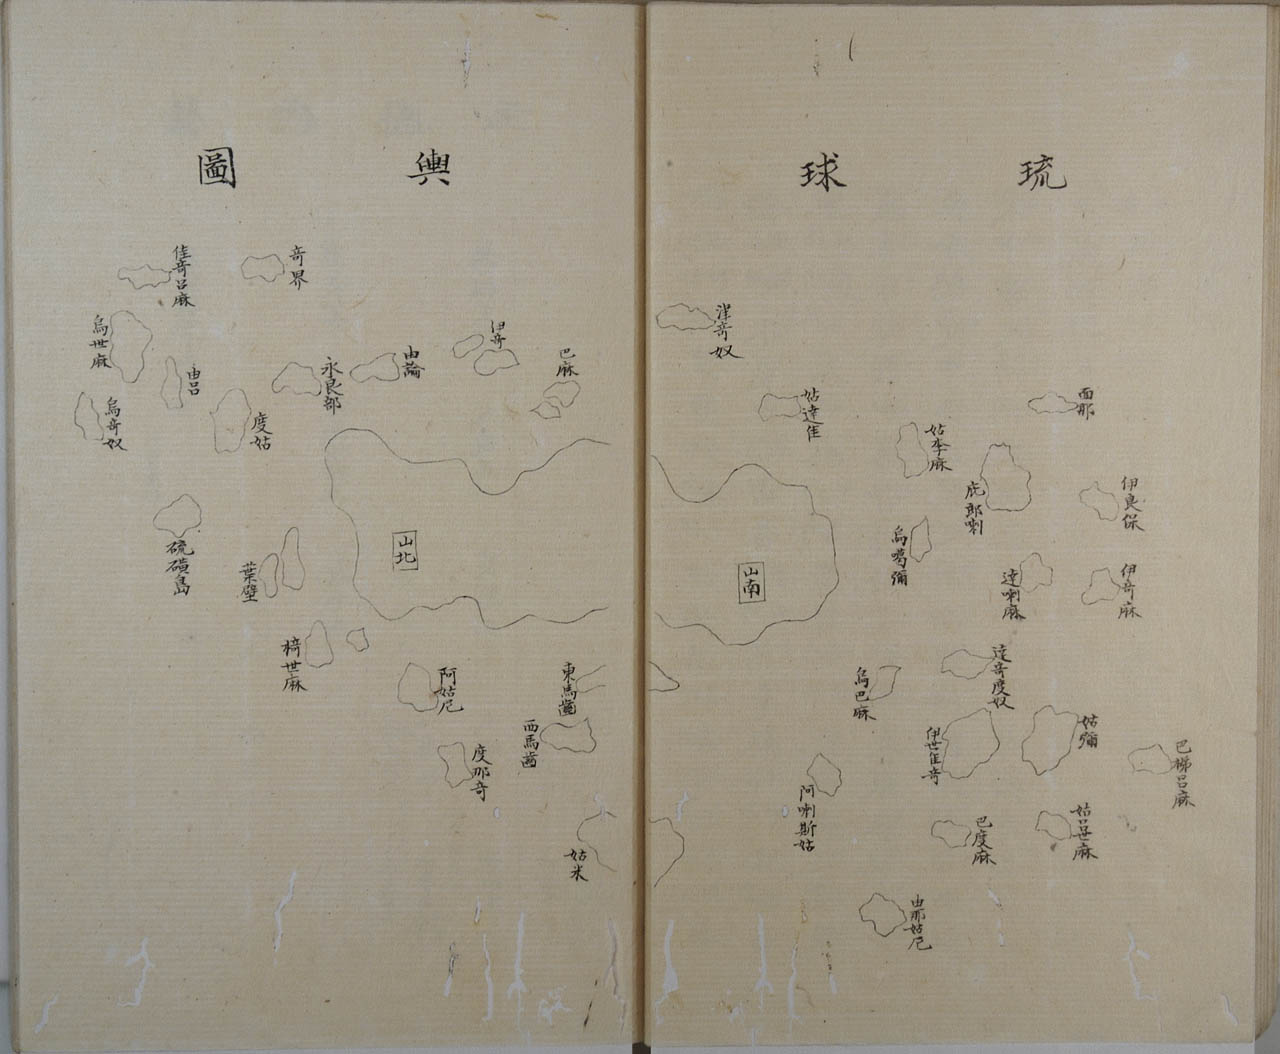 琉球輿圖
面那
伊良保
伊竒麻
巴梯呂麻
姑李麻
庇郎喇
達喇麻
烏噶彌
達竒度奴
姑彌
姑呂世麻
烏巴麻
伊世佳竒
巴度麻
由那姑尼
阿喇斯姑
津竒奴
姑達佳
山南
巴麻
伊竒
由論
永良部
竒界
度姑
佳竒呂麻
由呂
烏世麻
烏竒奴
山北
硫磺島
葉壁
椅世麻
阿姑尼
東馬齒
西馬齒
度那竒
姑米